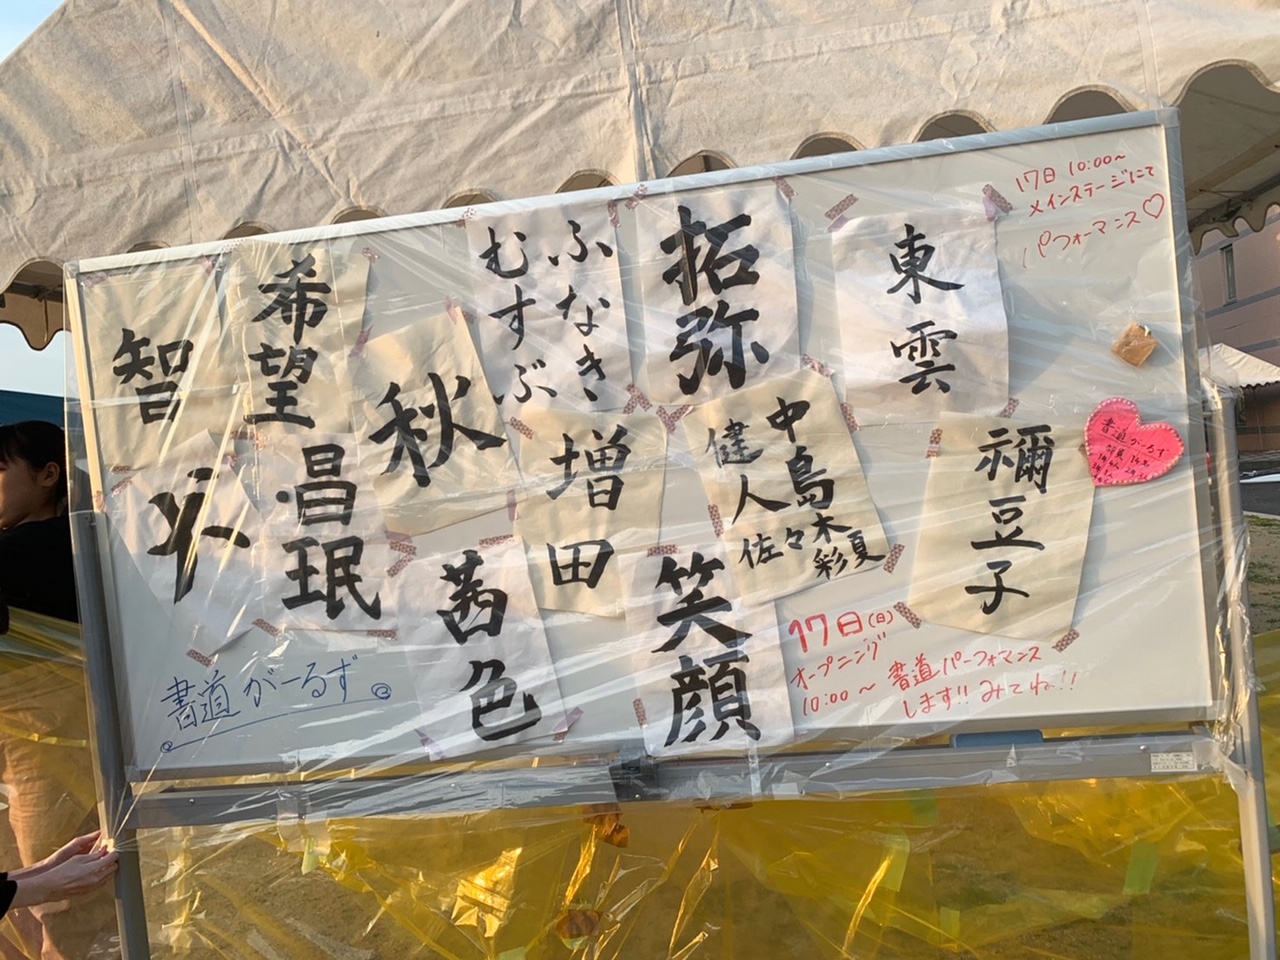 17日 10:00～
メインステージにて
パフォーマンス♡
東雲
拓弥
ふなき
むすぶ
希望
智
秋
増田
中島
健人
佐々木
彩夏
禰豆子
昌珉
茜色
笑顔
書道がーるず
17日(日)
オープニング
10:00～ 書道パーフォマンス
します!! みてね!!
書道がーるず